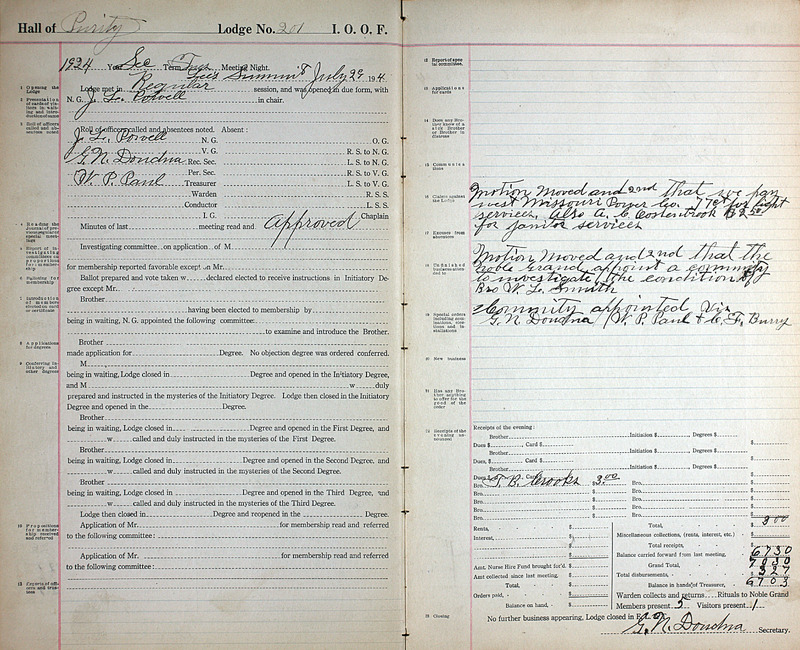 Hall of Purity Lodge No. 201 I. O. O. F.
1924 Year Sec Term Tues Meeting Night.
Lees Summit July 29 19 4
Lodge met in Regular session, and was opened in due form, with
N. G. J. L. Powell in chair.
1 Opening the Lodge
Roll of officers called and absentees noted. Absent:
J. L. Powell N. G. O. G.
V. G. R. S. to N. G.
G. N. Doudna Rec. Sec. L. S. to N. G.
Per. Sec. R. S. to V. G.
W. P. Paul Treasurer L. S. to V. G.
Warden R. S. S.
Conductor L. S. S.
I. G. Chaplain
Minutes of last meeting read and Approved
Investigating committee on application of M
for membership reported favorable except on Mr.
Ballot prepared and vote taken w declared elected to receive instructions in Initiatory De-
gree except Mr.
Brother
having been elected to membership by
being in waiting, N. G. appointed the following committee:
to examine and introduce the Brother.
Brother
made application for Degree. No objection degree was ordered conferred.
M
being in waiting, Lodge closed in Degree and opened in the Initiatory Degree,
and M w duly
prepared and instructed in the mysteries of the Initiatory Degree. Lodge then closed in the Initiatory
Degree and opened in the Degree.
Brother
being in waiting, Lodge closed in Degree and opened in the First Degree, and
w called and duly instructed in the mysteries of the First Degree.
Brother
being in waiting, Lodge closed in Degree and opened in the Second Degree, and
w called and duly instructed in the mysteries of the Second Degree.
Brother
being in waiting, Lodge closed in Degree and opened in the Third Degree, and
w called and duly instructed in the mysteries of the Third Degree.
Lodge then closed in Degree and reopened in the Degree.
Application of Mr. for membership read and referred
to the following committee:
Application of Mr. for membership read and referred
to the following committee:
12 Report of special committee.
13 Applications for cards
14 Does any Brother know of a sick Brother or Brother in distress
15 Communications
16 Claims against the Lodge
Motion Moved and 2nd that we pay
west Missouri Power Co. .77ct for light
services, Also A. C. $2.50
for janitor services
17 Excuses from absentees
18 Unfinished business
Motion Moved and 2nd that the
Noble Grand appoint a committy
to investigate the condition of
Bro W. L. Smith
Committy appointed Viz
G. N. Doudna, W. P. Paul & C. F. Burry
20 New business
21 Has any Brother anything to offer for the good of the order
22 Receipts of the evening announced
Receipts of the evening:
Brother Initiation $ Degrees $
Dues $ Card $ $
Brother Initiation $ Degrees $
Dues, $ Card $ $
Brother Initiation $ Degrees $
Dues $ Card $
Bro. T. B. Crooks $ 3.00 Bro. $
Bro. $ Bro. $
Bro. $ Bro. $
Bro. $ Bro. $
Bro. $
Rents, $ Total, $ 3 00
Interest, $ Miscellaneous collections, (rents, interest, etc.) $
$ Total receipts, $
$ Balance carried forward from last meeting, $ 67 30
Amt. Nurse Hire Fund brought for'd. $ Grand Total, $ 70 30
Amt collected since last meeting, $ Total disbursements, $ 3 27
Total, $ Balance in hands of Treasurer, $ 67 03
Orders paid, $ Warden collects and returns Rituals to Noble Grand
Balance on hand, $ Members present 5 Visitors present 1
23 Closing
No further business appearing, Lodge closed in F. L. & T.
G. N. Doudna Secretary.